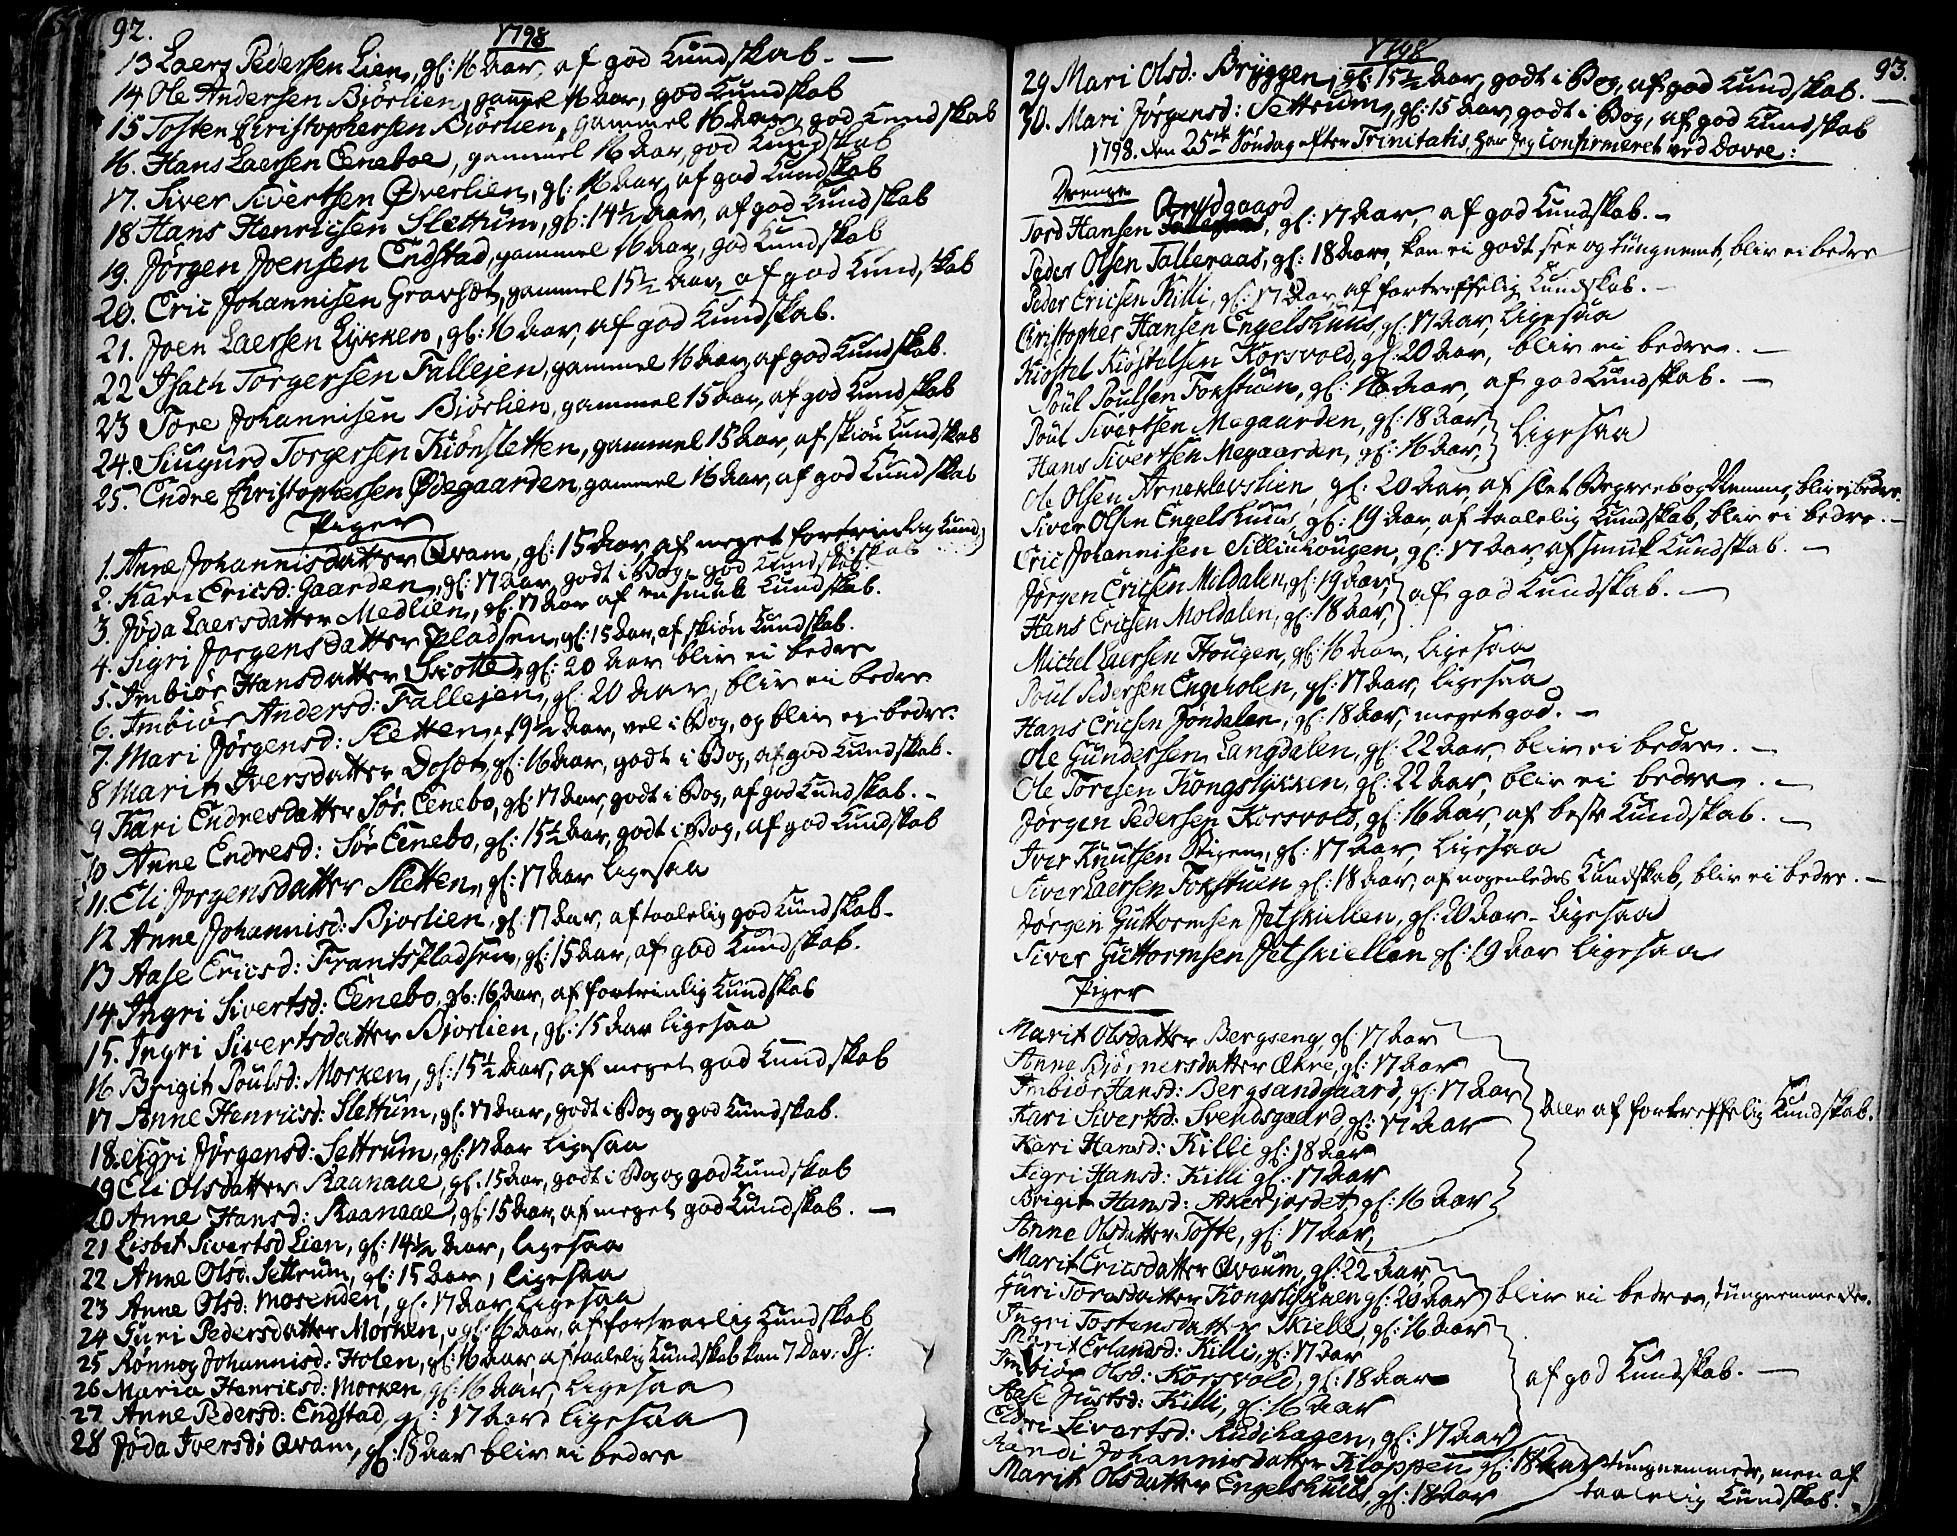 92.
1798
13 Laers Pedersen Lien, gl: 16 Aar, af god Kundskab. —
14 Ole Andersen Bjørlien, gammel 16 Aar, god Kundskab
15 Tosten Christophersen Biørlien, gammel 16 Aar, god Kundskab
16. Hans Laersen Eneboe, gammel 16 Aar, god Kundskab
17. Siver Sivertsen Øverlien, gl: 16 Aar, af god Kundskab
18 Hans Henricsen Slettum, gl: 14½ Aar, af god Kundskab
19. Jørgen Joensen Endstad, gammel 16 Aar, god Kundskab
20. Eric Johannisen Gravset, gammel 15½ Aar, af god Kundskab
21. Joen Laersen Lykken, gl: 16 Aar, af god Kundskab.
22 Isach Torgersen Fallejen, gammel 16 Aar, af god Kundskab.
23 Tore Johannisen Biørlien, gammel 15 Aar, af god Kundskab
24. Siugurd Torgersen Kiønsletten, gammel 15 Aar, af skiøn Kundskab
25. Endre Christophersen Ødegaarden, gammel 16 Aar, af god Kundskab
Piger
1. Anne Johannisdatter Qvam, gl: 15 Aar, af meget fortrinlig Kund,
skab
2. Kari Ericsd: Gaarden, gl: 17 Aar, godt i Bog, god Kundskab.
3. Jøda Laersdatter Medlien, gl: 17 Aar af en smuk Kundskab.
4. Sigri Jorgensdatter Pladsen, gl: 15 Aar, af skiøn Kundskab.
5. Imbiør Hansdatter Skotte, gl: 20 Aar blir ei bedre
6. Imbiør Andersd: Fallejen, gl: 20 Aar, blir ei bedre
7. Mari Jørgensd: Sletten, 19½ Aar, vel i Bog, og blir ei bedre.
8 Marit Iversdatter Doset, gl: 16 Aar, godt i Bog, af god Kundskab.
9 Kari Endresdatter Sør. Eenebo, gl: 17 Aar, godt i Bog, af god Kundskab. -
10 Anne Endresd: Sør Eenebo, gl: 15½ Aar, godt i Bog, af god Kundskab
11. Eli Jorgensdatter Sletten, gl: 17 Aar ligesaa
12 Anne Johannisd: Bjorlien, gl: 17 Aar, af taalelig god Kundskab.
13 Aase Ericsd: Frantspladsen, gl: 15 Aar, af god Kundskab.
14. Ingri Sivertsd: Eenebo, gl: 16 Aar, af fortrinlig Kundskab
15. Ingri Sivertsdatter Bjorlien, gl: 15 Aar ligesaa
16 Brigit Poulsd: Morken, gl: 15½ Aar, af meget god Kundskab
17 Anne Henricsd: Slettum, gl: 17 Aar, godt i Bog og god Kundskab.
18. Sigri Jørgensd: Settrum, gl: 17 Aar ligesaa
19 Eli Olsdatter Raanaae, gl: 15 Aar, godt i Bog og god Kundskab
20 Anne Hansd: Raanaae, gl: 15 Aar, af meget god Kundskab. —
21 Lisbet Sivertsd Lien, gl: 14½ Aar, ligesaa
22 Anne Olsd. Settrum, gl: 15 Aar, ligesaa
23 Anne Olsd: Mosenden, gl: 17 Aar, ligesaa
24 Guri Pedersdatter Morken, gl: 16 Aar, af forsvarlig Kundskab
25 Rønnog Johannisd: Holen, gl: 16 Aar, af taalelig Kundskab kan 7 Dav: Ps:
26 Maria Henricsd: Morken, gl: 16 Aar, ligesaa
27 Anne Pedersd: Endstad, gl: 17 Aar ligesaa
28 Jøda Iversd: Qvam, gl: 18 Aar blir ei bedre
93.
1798
29 Mari Olsd: Bryggen, gl: 15½ Aar, godt i Bog, af god Kundskab. —
30. Mari Jørgensd: Settrum, gl: 15 Aar, godt i Bog, af god Kundskab
1798. den 25de Søndag efter Trinitatis, har jeg Confirmeret ved Dovre:
Drenge
Arnsgaard
Tord Hansen, gl: 17 Aar, af god Kundskab. -
Peder Olsen Talleraas, gl: 18 Aar, kan ei godt see og tungnemt, blir ei bedre
Peder Ericsen Killi, gl: 17 Aar af fortreffelig Kundskab. -
Christopher Hansen Engelshuus, gl: 17 Aar, ligesaa
Kiøstel Kiøstelsen Korsvold, gl: 20 Aar, blir ei bedre. —
Poul Poulsen Fokstuen, gl: 16 Aar, af god Kundskab. —
Poul Sivertsen Megaarden, gl: 18 Aar,
Hans Sivertsen Megaarden, gl: 16 Aar, } ligesaa
Ole Olsen Arneklevslien, gl: 20 Aar af slet Begreeb og Nemme, blir ei bedre.
Siver Olsen Engelshuus, gl: 19 Aar, af taalelig Kundskab, blir ei bedre. —
Eric Johannisen Silliuhougen, gl: 17 Aar, af smuk Kundskab. —
Jørgen Ericsen Moldalen, gl: 19 Aar,
Hans Ericsen Moldalen, gl: 18 Aar, } af god Kundskab. —
Michel Laersen Hougen, gl: 16 Aar, ligesaa
Poul Pedersen Engholen, gl: 17 Aar, ligesaa
Hans Ericsen Jøndalen, gl: 18 Aar, meget god. —
Ole Gundersen Langdalen, gl: 22 Aar, blir ei bedre. —
Ole Toresen Kongslykken, gl: 22 Aar, blir ei bedre. —
Jørgen Pedersen Korsvold, gl: 16 Aar, af beste Kundskab. —
Iver Knutsen Rigen, gl: 17 Aar, ligesaa
Siver Laersen Fokstuen gl: 18 Aar, af nogenledes Kundskab, blir ei bedre. —
Jørgen Guttormsen Jetskiellen, gl: 20 Aar - ligesaa
Siver Guttormsen Jetskiellen gl: 19 Aar ligesaa
Piger
Marit Olsdatter Bergseng, gl: 17 Aar
Anne Biørnersdatter Økre, gl: 17 Aar
Imbiør Hansd: Bergsandgaard, gl: 17 Aar
Kari Sivertsd: Svendsgaard gl: 17 Aar } Alle af fortreffelig Kundskab.
Kari Hansd: Killi gl: 18 Aar
Sigri Hansd: Killi gl: 17 Aar
Brigit Hansd: Akerjordet gl: 16 Aar
Anne Olsdatter Tofte, gl: 17 Aar,
Marit Ericsdatter Qvaum, gl: 22 Aar
Guri Toresdatter Kongslykken gl: 20 Aar } blir ei bedre, tungnemmede.
Ingri Tostensdatter Skielle, gl: 16 Aar
Marit Erlandsd: Killi, gl: 17 Aar
Imbiør Olsd: Korsvold, gl: 18 Aar } af god Kundskab. —
Aase Justsd: Killi, gl: 16 Aar
Eldri Sivertsd: Rudihagen, gl: 17 Aar
Randi Johannisdatter Kloppen gl: 18 Aar tungnemmede, men af
Marit Olsdatter Engelshuus, gl: 18 Aar taalelig Kundskab.